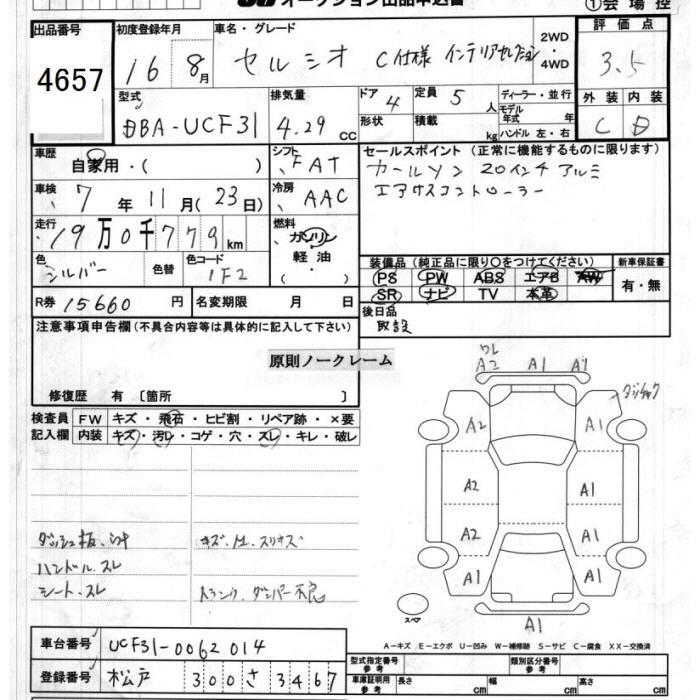 オークション出品申込書
①会場控
出品番号
4657
初度登録年月
16 8月
車名・グレード
セルシオ C仕様 インテリアセレクション
2WD
4WD
評価点
3.5
外装 内装
C D
型式
DBA-UCF31
排気量
4.29 CC
ドア 4
定員 5 人
ディーラー・並行
モデル年式 年式
形状
積載 kg
ハンドル 左・右
車歴
自家用・( )
シフト FAT
セールスポイント (正常に機能するものに限ります)
カールソン 20インチアルミ
エアサスコントローラー
車検 7年 11月(23日)
冷房 AAC
走行 19万0千779km
燃料 ガソリン
軽油
・( )
色 シルバー
色替
色コード 1F2
装備品 (純正品に限り○をつけてください)
新車保証書
PS PW ABS エアB AW
SR ナビ TV 本革
有・無
R券 15660円
名変期限 月 日
後日品
取説
注意事項申告欄(不具合内容等は具体的に記入して下さい)
原則ノークレーム
修復歴 有〔箇所 〕
検査員記入欄
FW キズ・飛石・ヒビ割・リペア跡・×要
内装 キズ・汚レ・コゲ・穴・スレ・キレ・破レ
ワレ
A2 A1 A1
A2 A1
A2 A1
A2 A1
A1 A1
A1
スペア
ハンドル.スレ
シート.スレ
トランク.ダンパー不良
A-キズ E-エクボ U-凹み W-補修跡 S-サビ C-腐食 XX-交換済
車台番号 UCF31-0062014
登録番号 松戸 300 さ 3467
型式指定番号 参考
類別区分番号 参考
車庫証明用 参考 長さ cm 幅 cm 高さ cm